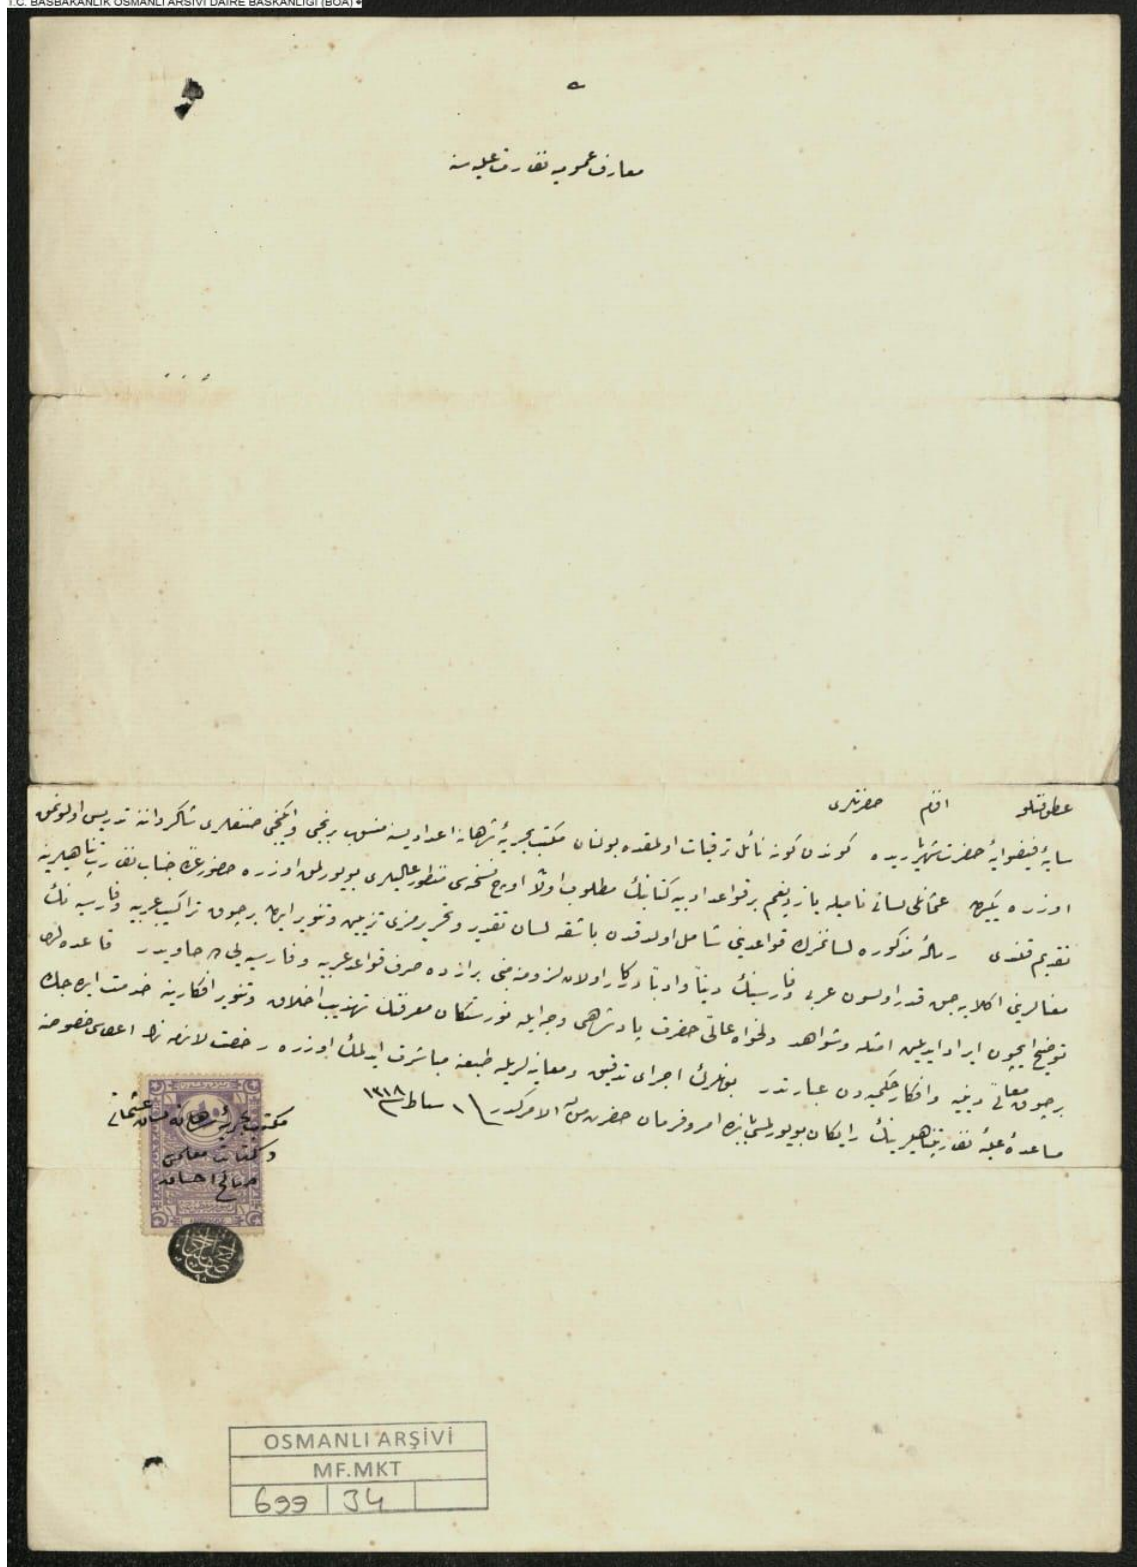 T.C. BAŞBAKANLIK OSMANLI ARŞİVİ DAİRE BAŞKANLIĞI (BOA)
معارف عمومیه نظارت علیه‌سنه
عطوفتلو افندم حضرتلری
سایهٔ فیضوایهٔ حضرت شهریاریده کوندن کونه نائل ترقیات اولمقده بولنان مکتب بحریهٔ شاهانه اعدادیسنه منسوب برنجی وایکنجی صنفلری شاکرداننه تدریس اولونمق
اوزره عثمانلی لسانی نامیله یازدیغم بر قواعد ادبیه کتابنك مطلوب اولان اوچ نسخه‌سی منظور عالیلری بیوریلمق اوزره حضور جناب نظارتپناهیلرینه
تقدیم قلندی رسالهٔ مذکوره لسانمزك قواعدینی شامل اولدقدن باشقه لسان تقدیر و تحریرمزی تزیین وتنویر ایدن برچوق تراکیب عربیه وفارسیه نك
معنالرینی اكلایه‌جق قدر اولسون عربی وفارسینك دیناً وادباً درکار اولان لزومنه مبنی براز ده صرف قواعد عربیه وفارسیه یی حاویدر قاعده‌لری
توضیح ایچون ایراد ایدیلن امثله وشواهد دلخواه عالی حضرت پادشاهی وجهله نورستکان معرفتك تهذیب اخلاق وتنویر افکارینه خدمت ایده‌جك
برچوق معالی دینیه وافکار حکمیه‌دن عبارتدر بونلرك اجرای تدقیق ومعاینه‌لریله طبعنه مباشرت ایدلمك اوزره رخصت لازمه‌نك اعطاسی خصوصنه
مساعدهٔ علیهٔ نظارتپناهیلرینك رایکان بیورلمسی بابنده امر وفرمان حضرت من له الامرکدر ١ شباط ١٣١٨
مکتب بحریهٔ شاهانه لسان عثمانی
وکتابت معلمی
صالح
OSMANLI ARŞİVİ
MF.MKT
699 34